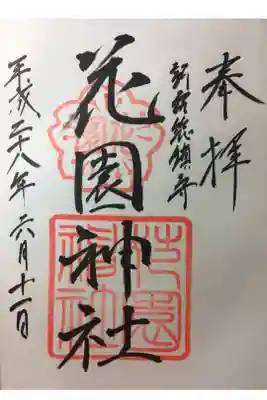 奉拝
新宿総鎮守
花園神社
平成二十八年六月十一日
花園神社